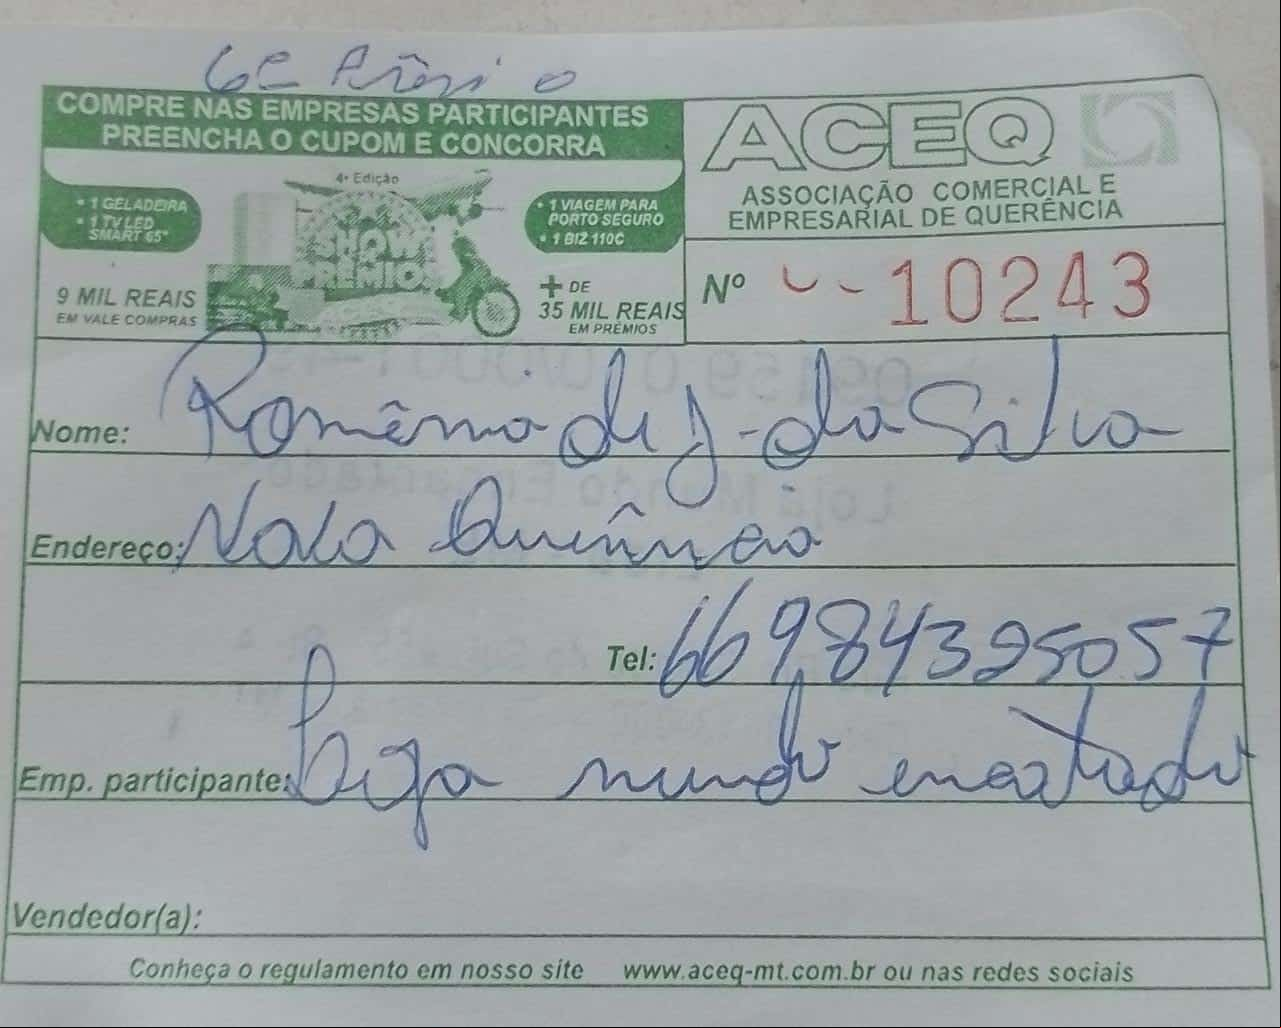 6º Prêmio
COMPRE NAS EMPRESAS PARTICIPANTES
PREENCHA O CUPOM E CONCORRA
4ª Edição
• 1 GELADEIRA
• 1 TV LED
SMART 65"
SHOW
PRÊMIOS
• 1 VIAGEM PARA
PORTO SEGURO
• 1 BIZ 110C
9 MIL REAIS
EM VALE COMPRAS
+ DE
35 MIL REAIS
EM PRÊMIOS
ACEQ
ASSOCIAÇÃO COMERCIAL E
EMPRESARIAL DE QUERÊNCIA
Nº 10243
Nome: da Silva
Endereço: Nova Querência
Tel: 66984395057
Emp. participante: Loja mundo encatado
Vendedor(a):
Conheça o regulamento em nosso site www.aceq-mt.com.br ou nas redes sociais